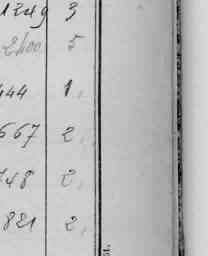 1249 3
2400 5
444 1,
567 2,
748 2,
821 2,